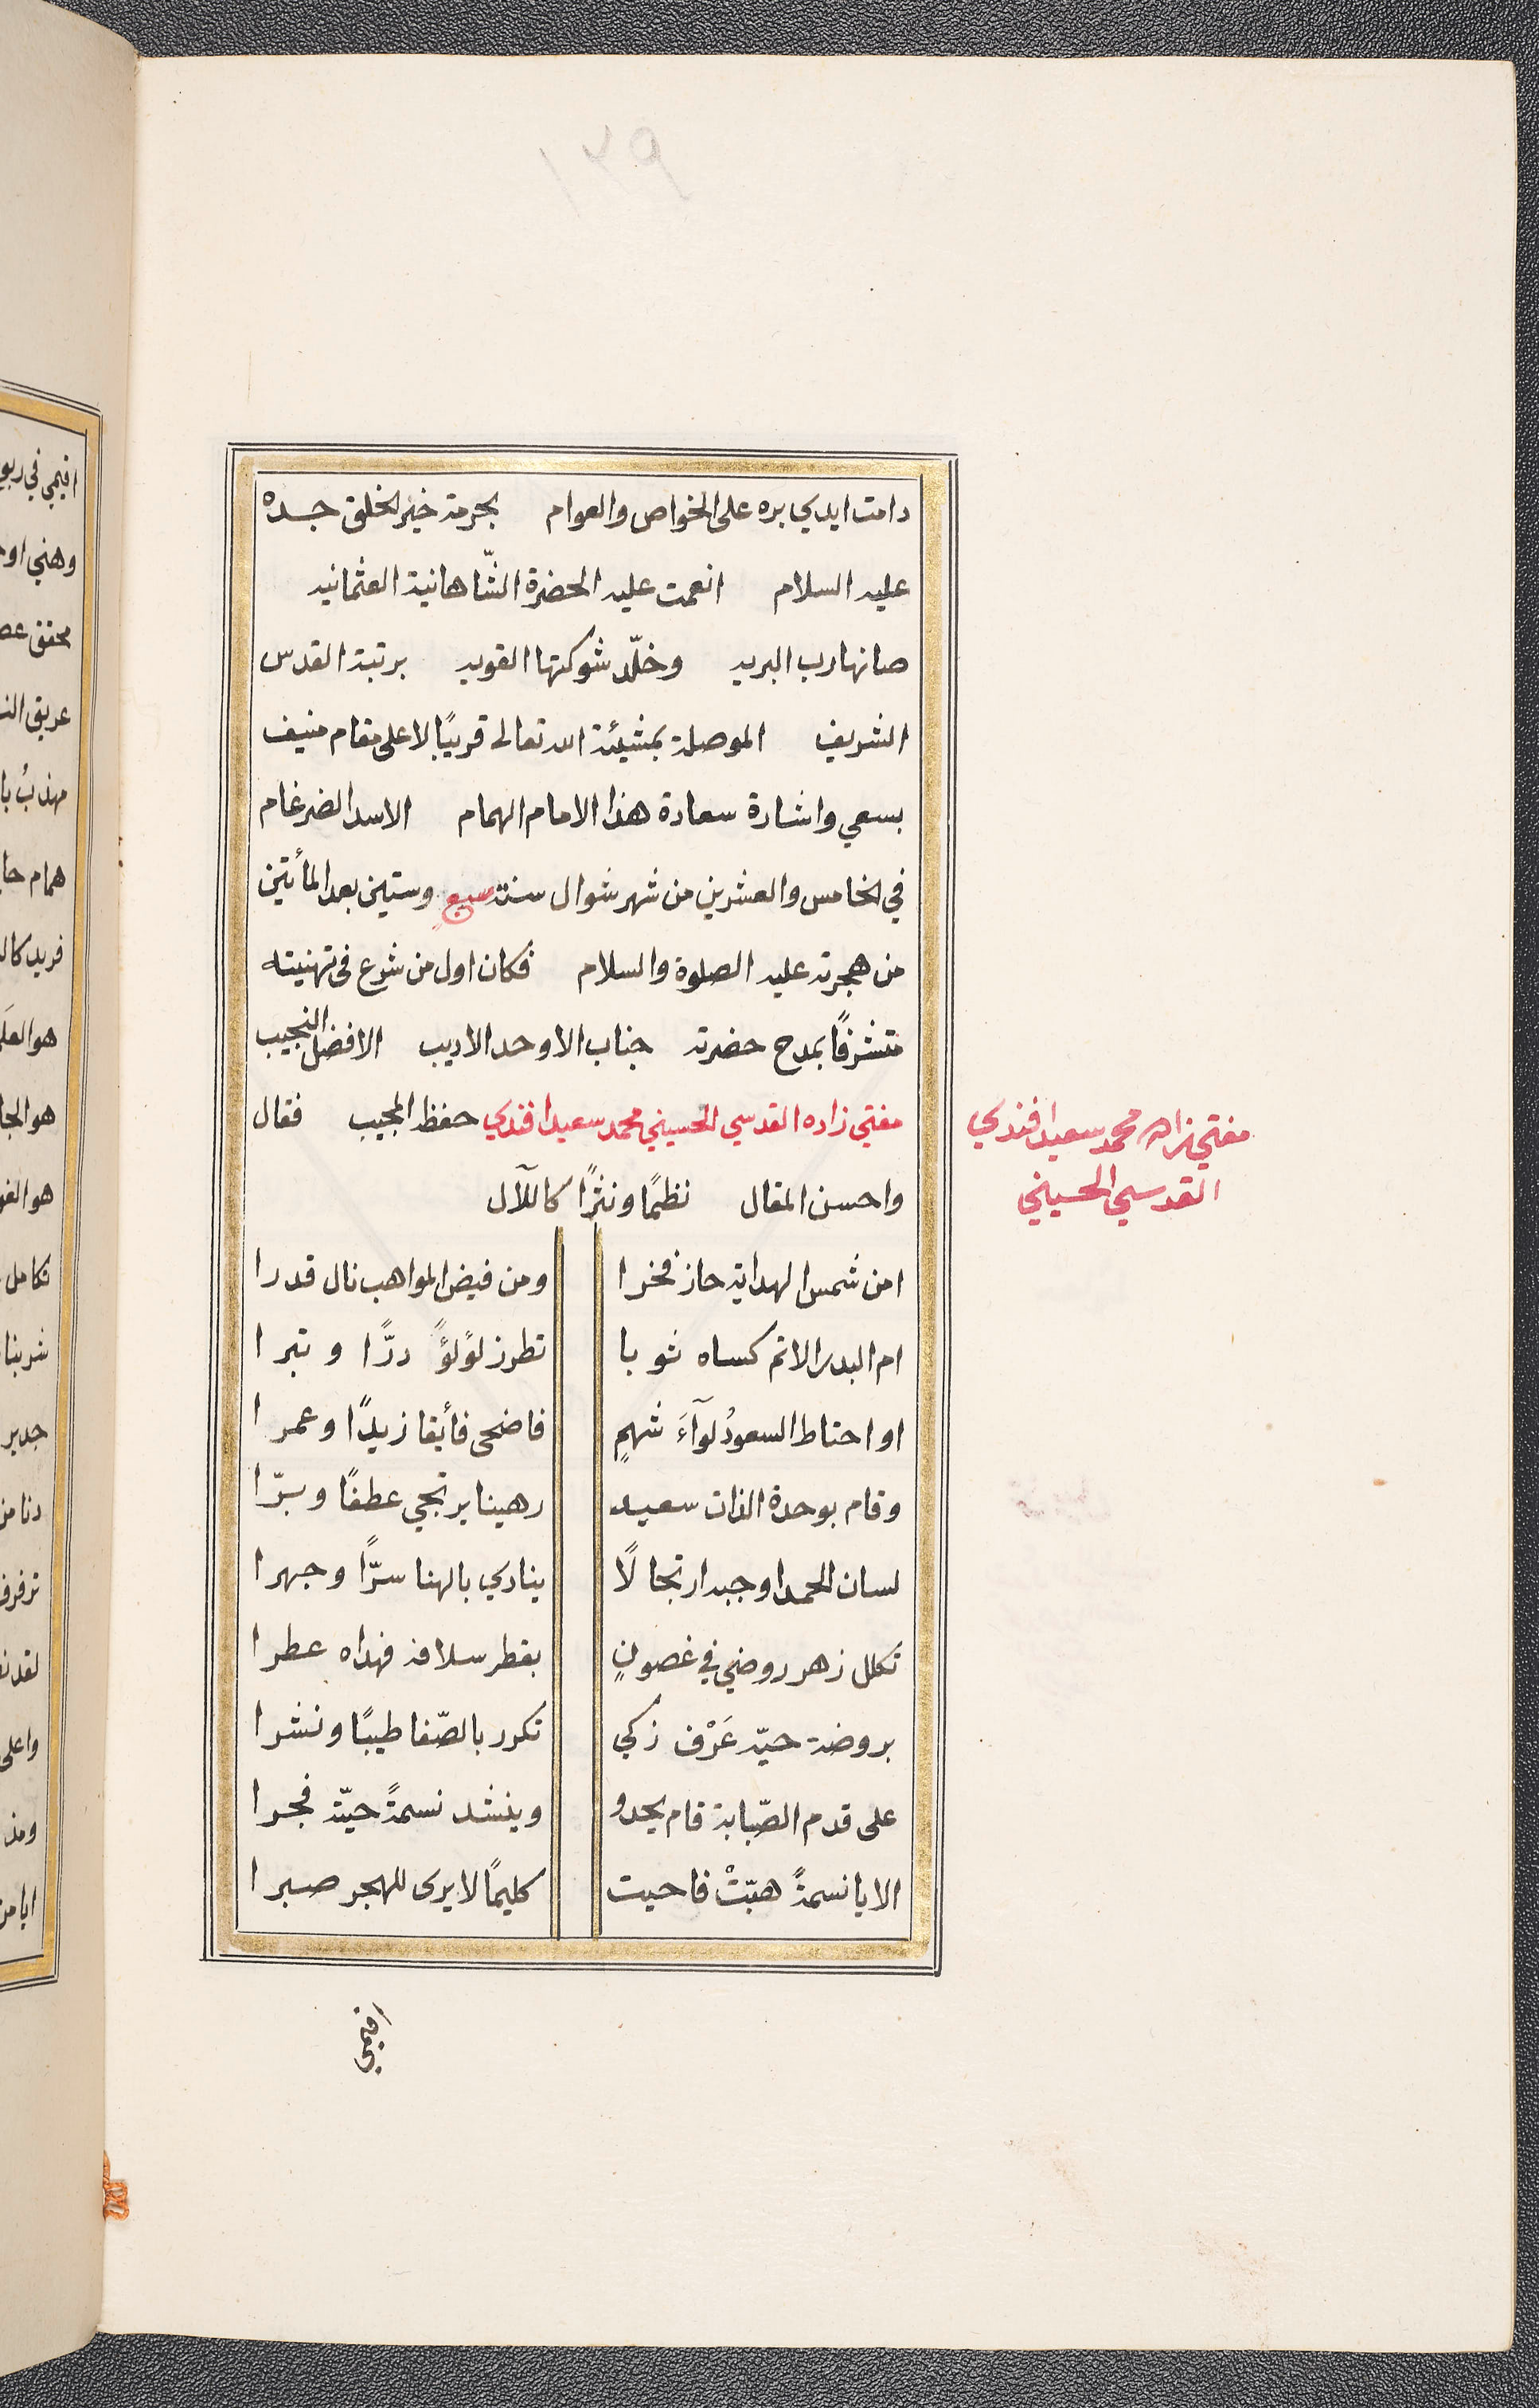 ١٣٩
دامت ايدي بره على الخواص والعوام بحرمة خير الخلق جده
عليه السلام انعمت عليه الحضرة الشّاهانية العثمانيه
صانها رب البريه وخلّد شوكتها القويه برتبة القدس
الشريف الموصلة بمشيئة الله تعالى قريبًا لاعلى مقام منيف
بسعي واشارة سعادة هذا الامام الهمام الاسد الضرغام
في الخامس والعشرين من شهر شوال سنة سبع وستين بعد المأتين
من هجرته عليه الصلوة والسلام فكان اول من شرع في تهنيته
متشرفًا بمدح حضرته جناب الاوحد الاديب الافضل النجيب
مفتي زاده القدسي الحسيني محمد سعيد افندي حفظ المجيب فقال
مفتي زاده محمد سعيد افندي
القدسي الحسيني
واحسن المقال نظمًا ونثرًا كاللآل
امن شمس الهداية حاز فخرا ومن فيض المواهب نال قدرا
ام البدر الاتم كساه ثوبا تطرز لؤلؤً درًّا وتبرا
او احتاط السعودُ لوآءَ شهمٍ فاضحى فأيقا زيدًا وعمرا
وقام بوحدة الذات سعيد رهينا يرتجي عطفًا وبرّا
لسان الحمد اوجبه ارتجالًا ينادي بالهنا سرًّا وجهرا
تكلل زهر روضي في غصونٍ بقطر سلافه فهداه عطرا
بروضة حيّه عَرْف زكي تكرر بالصّفا طيبًا ونشرا
على قدم الصّبابة قام يحدو وينشد نسمةً حيّت فجرا
الا يا نسمةً هبّتْ فاحيت كليمًا لا يرى للهجر صبرا
اقيمي
اقيمي في ربو
وهني او
محقق عص
عريق الن
مهذبُ با
همام حا
فريد كال
هو العلَ
هو الجا
هو الغو
تكامل
شربنا
جدير
دنا من
ترفرف
لقد ن
واعلى
ومذ
ايا من